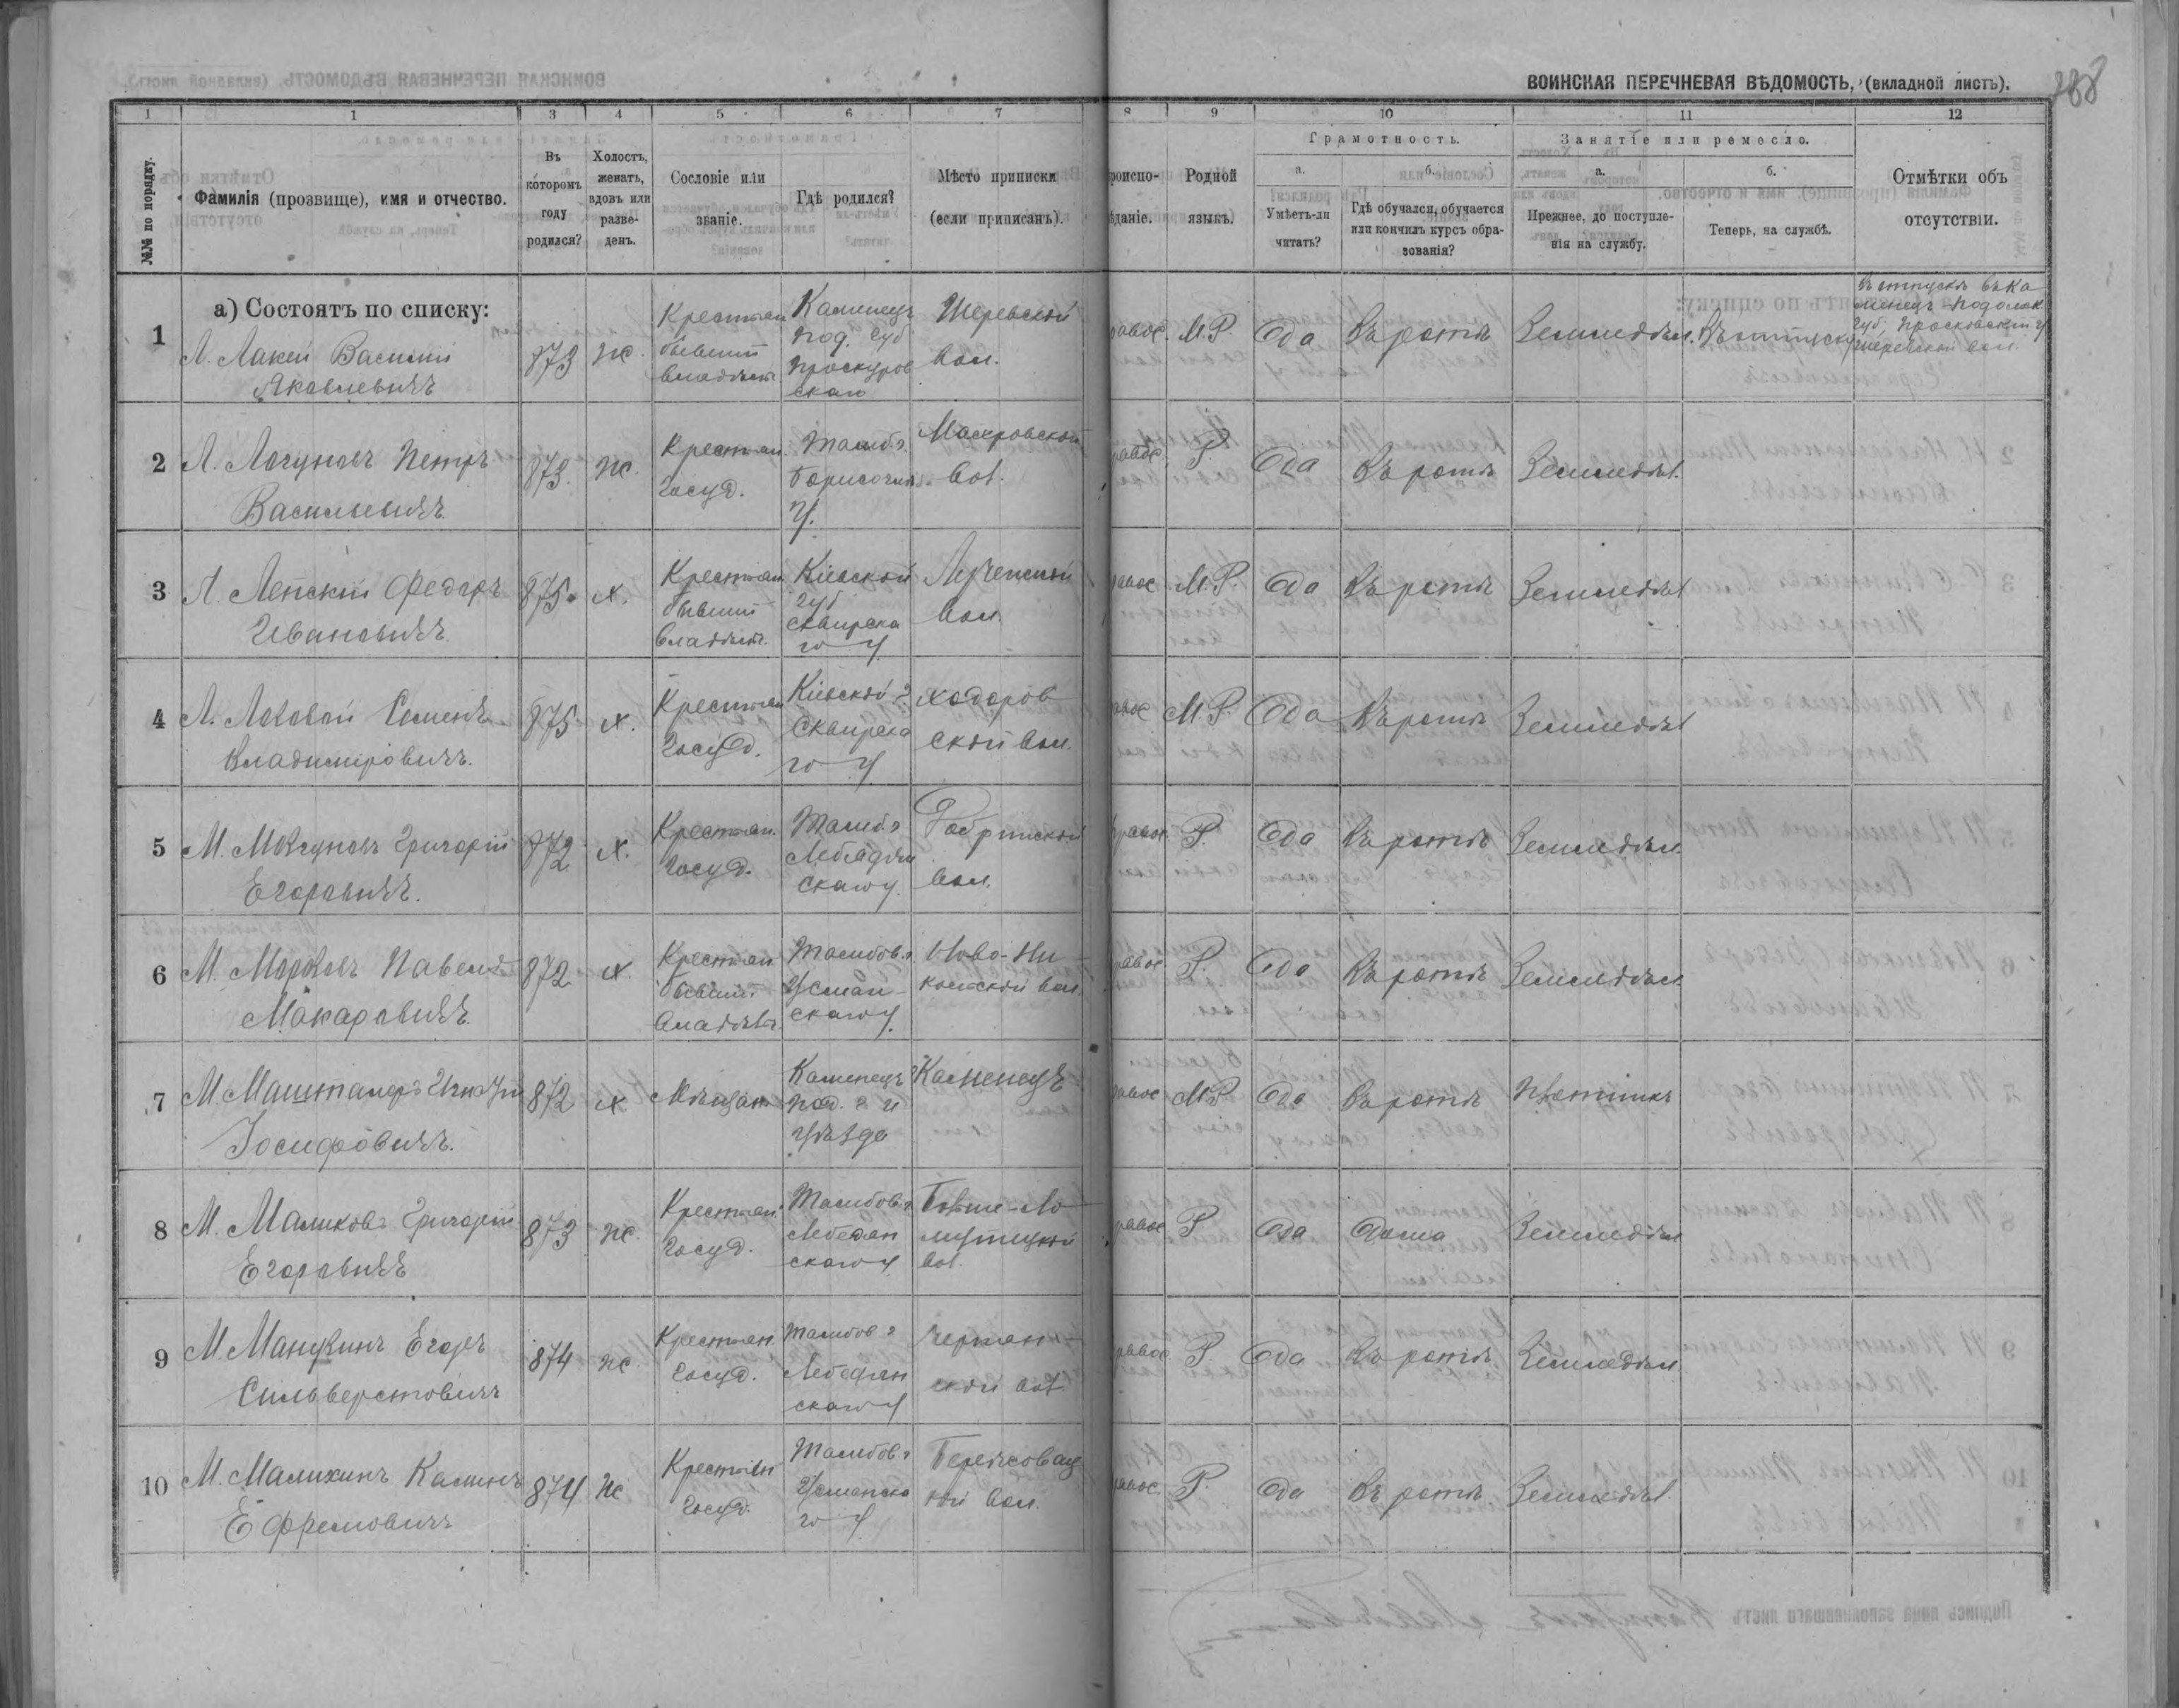 ВОИНСКАЯ ПЕРЕЧНЕВАЯ ВѢДОМОСТЬ, (вкладной листъ).
288
1 1 3 4 5 6 7 8 9 10 11 12
№№ по порядку.
Фамилія (прозвище), имя и отчество.
Въ которомъ году родился?
Холостъ, женатъ, вдовъ или разве-денъ.
Сословіе или званіе.
Гдѣ родился?
Мѣсто приписки (если приписанъ).
роиспо-
ѣданіе.
Родной языкъ.
Грамотность.
а.
Умѣетъ-ли читать?
б.
Гдѣ обучался, обучается или кончилъ курсъ обра-зованія?
Занятіе или ремесло.
а.
Прежнее, до поступле-нія на службу.
б.
Теперь, на службѣ.
Отмѣтки объ отсутствіи.
а) Состоятъ по списку:
1 Л. Лакей Василий Яковлевичъ 873 ж. Крестьян бывший владѣльч. Каменец Под. губ Проскуров скаго Шеревской вол. равос. М.Р. Да Въ ротѣ Земледѣл. Въ отпуску
Въ отпуску въ Ка
менец Подольск.
губ. Просковскаго у
Шеревской вол.
2 Л. Логуновъ Петръ Васильевичъ 873. ж. Крестьян. Госуд. Тамб. г. Борисогл. у. вол. равос. Р. Да Въ ротѣ Земледѣл.
3 Л. Лепский Федоръ Ивановичъ 875. х. Крестьян бывший владѣльч. Кіевской губ Сквирска го у вол. равос М.Р. Да Въ ротѣ Земледѣл
4 Л. Лововой Семенъ Владиміровичъ. 875. х. Крестьян Госуд. Кіевской г. Сквирска го у Ходоров ской вол. равос М.Р. Да Въ ротѣ Земледѣл
5 М. Григорій Егоровичъ. 872 х. Крестьян. Госуд. Тамб. г Лебядян скаго у. вол. равос. Р. Да Въ ротѣ Земледѣл.
6 М. Павелъ Макаровичъ. 872 х. Крестьян бывший владѣльч. Тамбов. г Усман- скаго у. Ново-Ни кольской вол. равос. Р. Да Въ ротѣ Земледѣл.
7 М. Іосифовичъ. 872 х. Мѣщан. Каменец Под. г. и уѣзда Каменецъ равос М.Р Да Въ ротѣ
8 М. Маликовъ Григорій Егоровичъ 873 ж. Крестьян Госуд. Тамбов. г Лебедян скаго у вол. равос Р Да Дома Земледѣл
9 М. Манукинъ Егоръ Сильверстовичъ 874 ж. Крестьян Госуд. Тамбов г Лебедян скаго у ской вол равос Р. Да Въ ротѣ Земледѣл.
10 М. Малихинъ Ефремовичъ 874 ж Крестьян Госуд. Тамбов г Усманска го у вол. равос. Р. Да Въ ротѣ Земледѣл.